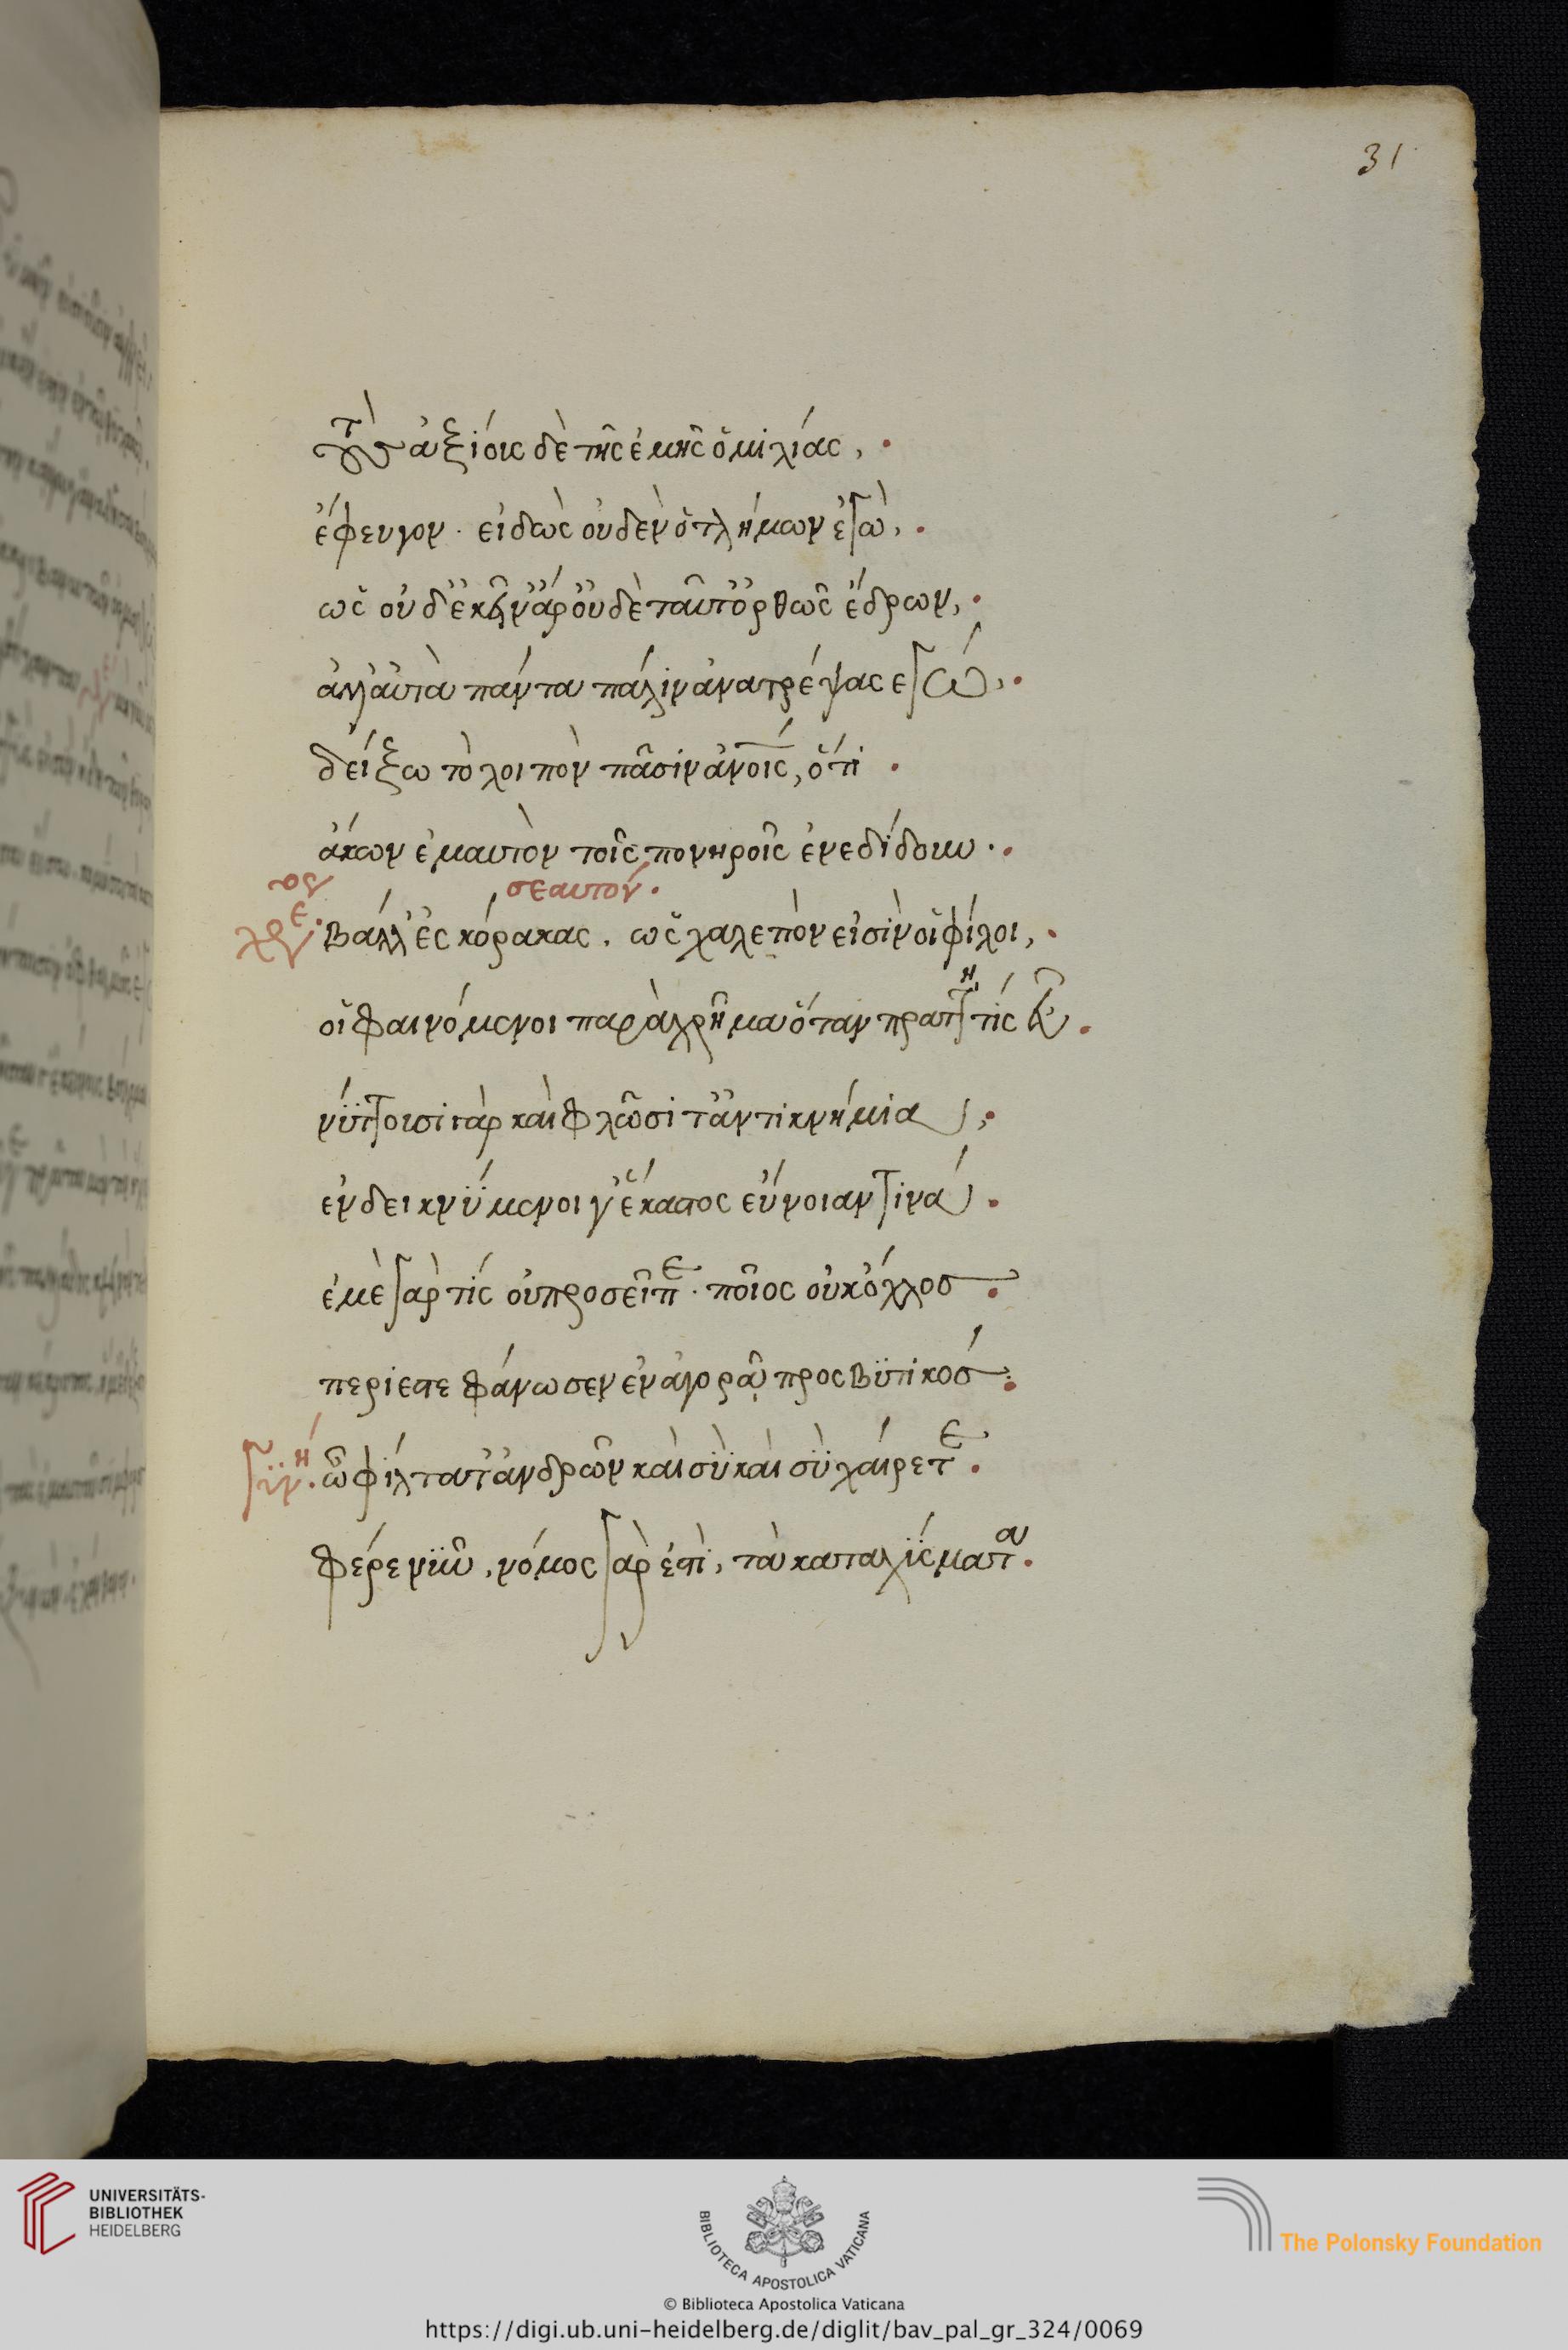 31
τοὺς ἀξίους δὲ τῆς ἐμῆς ὁμιλίας,
ἔφευγον. εἰδὼς οὐδὲν ὁ τλήμων ἐγὼ,
ὡς οὐδ' ἐκεῖν' ἄρ' οὐδὲ ταῦτ' ὀρθῶς ἔδρων,
ἀλλ' αὐτὰ πάντα πάλιν ἀνατρέψας ἐγώ,
δείξω τὸ λοιπὸν πᾶσιν ἀνοις, ὅτι
ἄκων ἐμαυτὸν τοῖς πονηροῖς ἐνεδίδουν.
σεαυτόν.
χρε. Βάλλ' ἐς κόρακας. ὡς χαλεπὸν εἰσὶν οἱ φίλοι,
οἱ φαινόμενοι παραχρῆμα ὅταν πράττη τίς εὖ.
νύττουσι γὰρ καὶ φλῶσι τἀντικνήμια,
ἐνδεικνύμενοι γ' ἕκαστος εὔνοιαν τινά.
ἐμὲ γὰρ τίς οὐ προσεῖπε. ποῖος οὐκ ὄχλος
περιεστεφάνωσεν ἐν ἀγορᾷ προσβυτικός
γυνή. ὦ φίλτατ' ἀνδρῶν καὶ σὺ καὶ σὺ χαίρετε.
φέρε νῦν, νόμος γὰρ ἐστὶ, τὰ καταχύσματα.
UNIVERSITÄTS-
BIBLIOTHEK
HEIDELBERG
BIBLIOTECA APOSTOLICA VATICANA
The Polonsky Foundation
© Biblioteca Apostolica Vaticana
https://digi.ub.uni-heidelberg.de/diglit/bav_pal_gr_324/0069